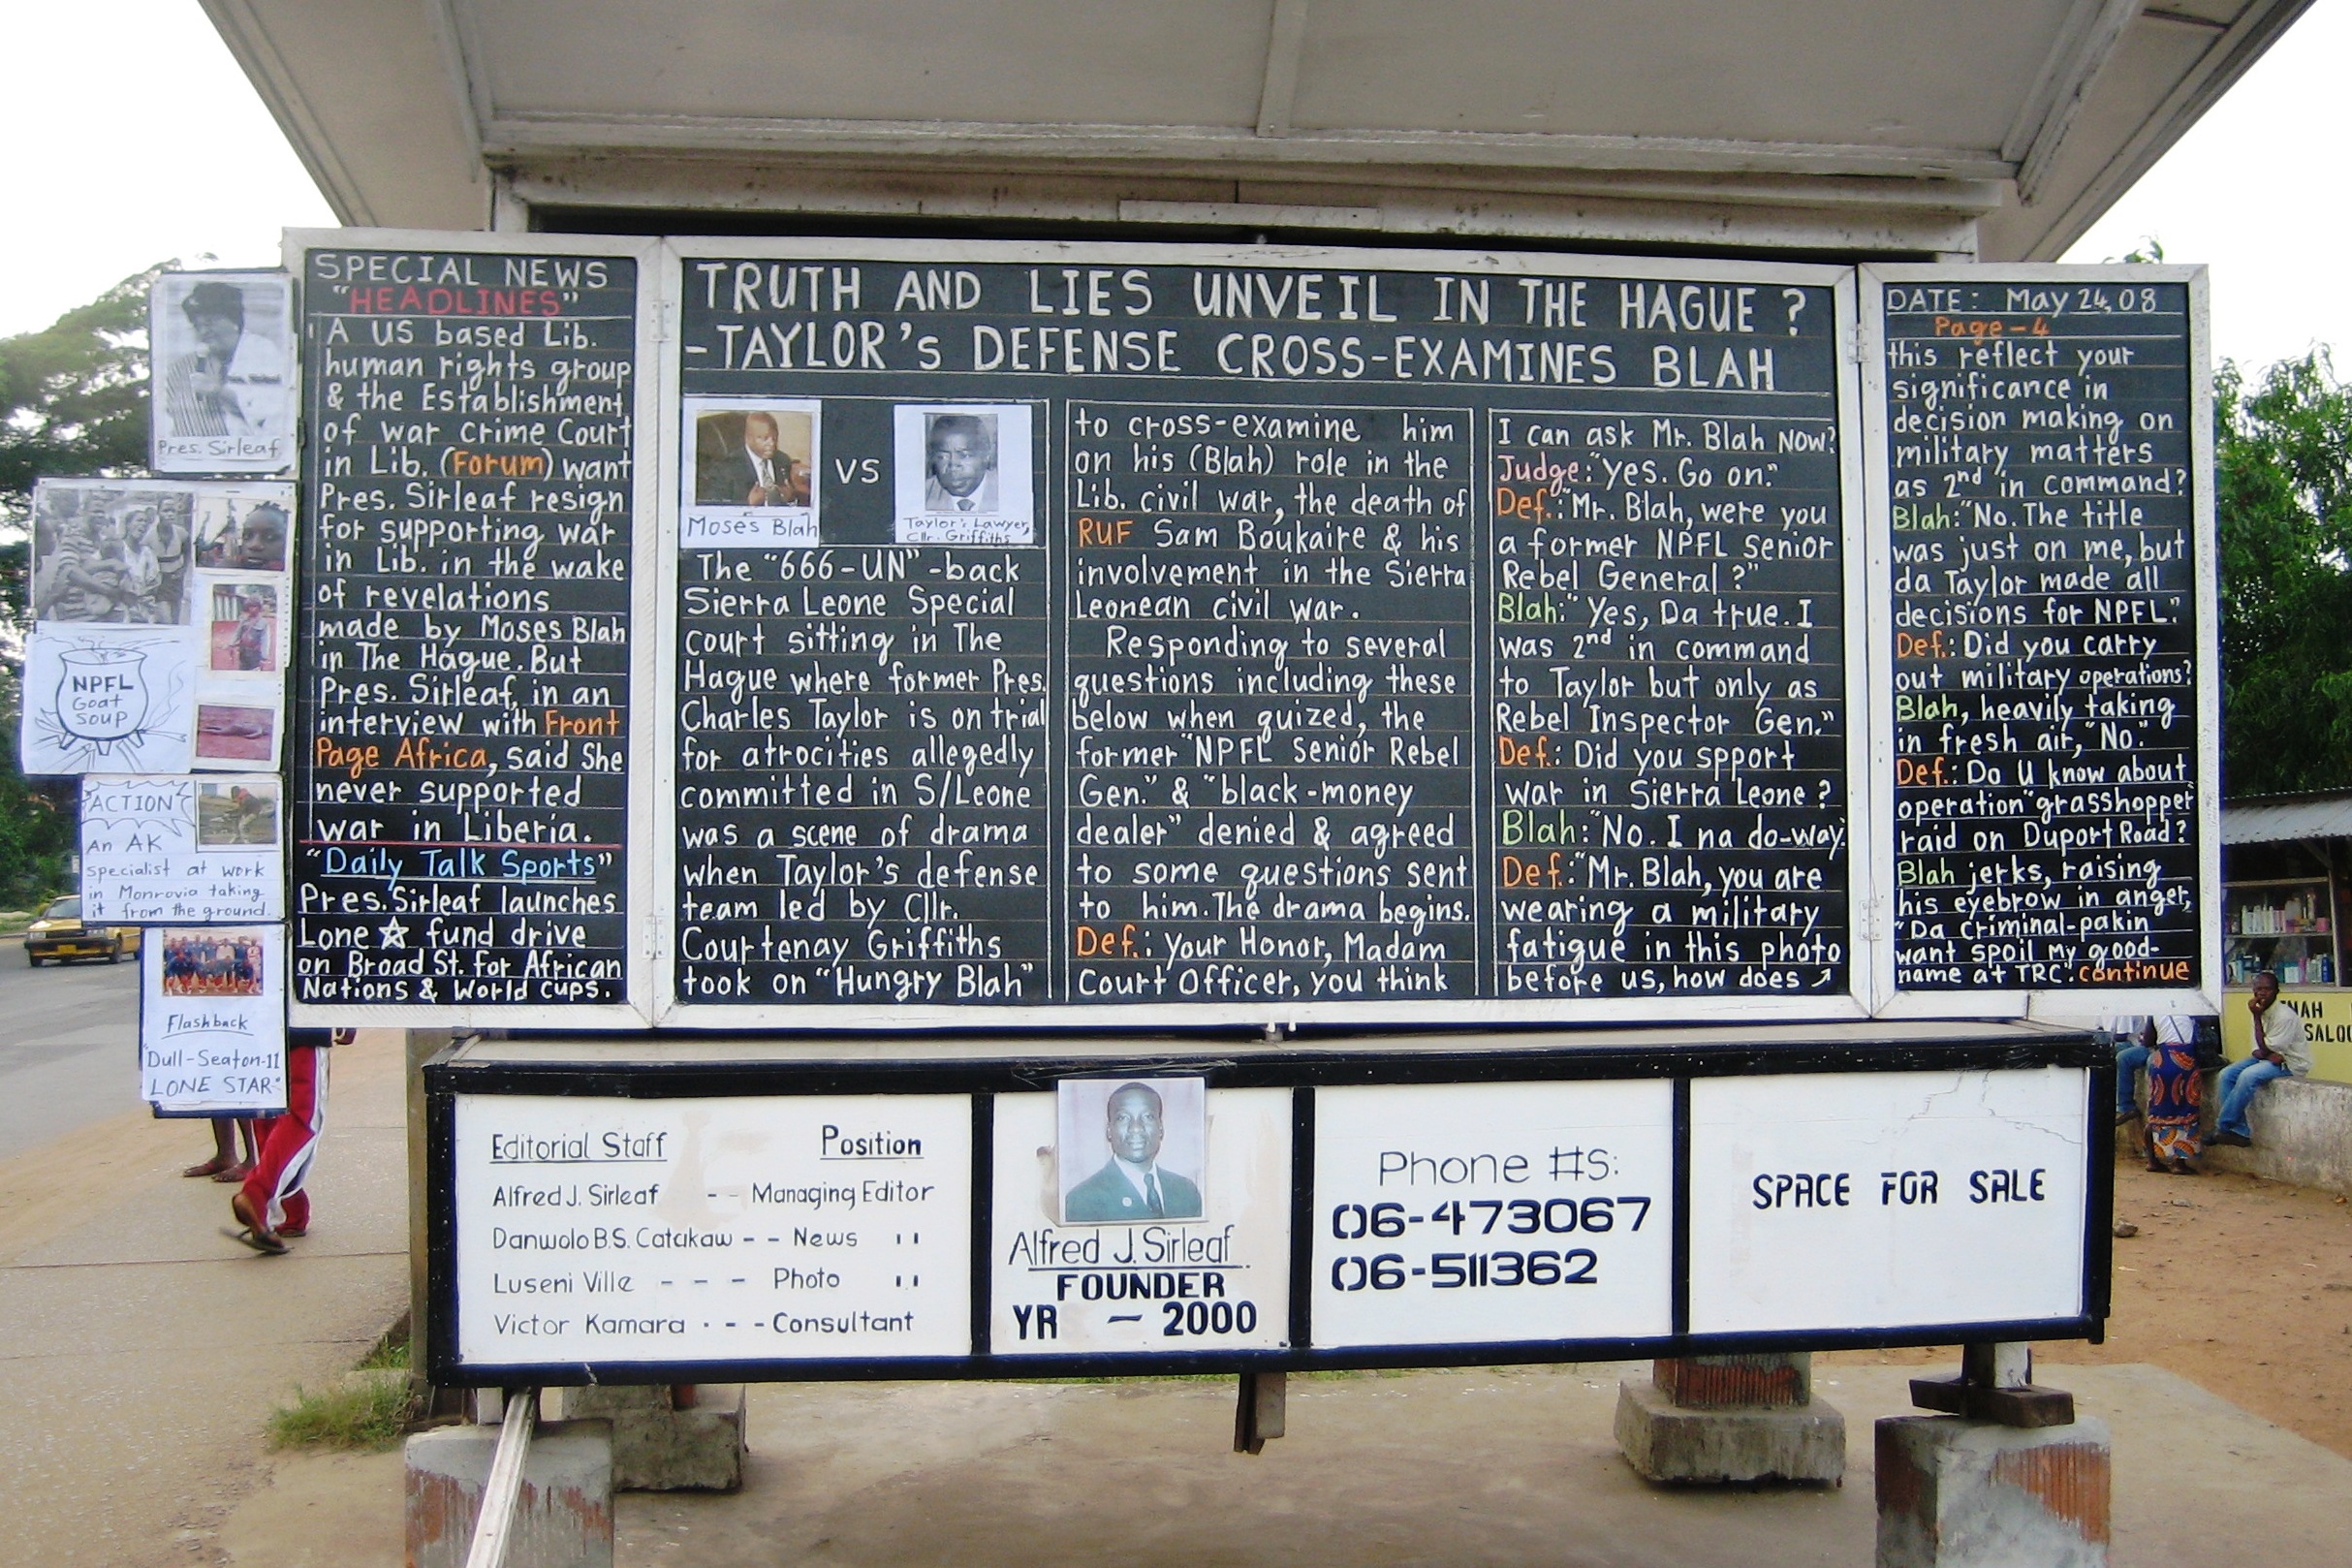 Pres. Sirleaf
NPFL
Goat
SOUP
"ACTION"
An AK
specialist at work
in Monrovia taking
it from the ground.
Flashback
"Dull-Seaton-11
LONE STAR"
SPECIAL NEWS
"HEADLINES"
'A US based Lib.
human rights group
& the Establishment
of war crime Court
in Lib. (Forum) want
Pres. Sirleaf resign
for supporting war
in Lib. in the wake
of revelations
made by Moses Blah
in The Hague. But
Pres. Sirleaf, in an
interview with Front
Page Africa, said She
never supported
war in Liberia.
"Daily Talk Sports"
Pres. Sirleaf launches
Lone ☆ fund drive
on Broad St. for African
Nations & World cups.
TRUTH AND LIES UNVEIL IN THE HAGUE?
-TAYLOR'S DEFENSE CROSS-EXAMINES BLAH
Moses Blah
VS
Taylor's Lawyer,
Cllr. Griffiths
The "666-UN"-back
Sierra Leone Special
court sitting in The
Hague where former Pres.
Charles Taylor is on trial
for atrocities allegedly
committed in S/Leone
was a scene of drama
when Taylor's defense
team led by Cllr.
Courtenay Griffiths
took on "Hungry Blah"
to cross-examine him
on his (Blah) role in the
Lib. civil war, the death of
RUF Sam Boukaire & his
involvement in the Sierra
Leonean civil war.
Responding to several
questions including these
below when quized, the
former "NPFL Senior Rebel
Gen." & "black-money
dealer" denied & agreed
to some questions sent
to him. The drama begins.
Def.: Your Honor, Madam
Court Officer, you think
I can ask Mr. Blah NOW?
Judge: "Yes. Go on."
Def.: "Mr. Blah, were you
a former NPFL Senior
Rebel General?"
Blah: "Yes, Da true. I
was 2nd in command
to Taylor but only as
Rebel Inspector Gen."
Def.: Did you spport
war in Sierra Leone?
Blah: "No. I na do-way.
Def.: "Mr. Blah, you are
wearing a military
fatigue in this photo
before us, how does ↗
DATE: May 24, 08
Page-4
this reflect your
significance in
decision making on
military matters
as 2nd in command?
Blah: "No. The title
was just on me, but
da Taylor made all
decisions for NPFL."
Def.: Did you carry
out military operations?
Blah, heavily taking
in fresh air, "No."
Def.: Do U know about
operation "grasshopper"
raid on Duport Road?
Blah jerks, raising
his eyebrow in anger,
"Da Criminal-pakin
want spoil my good-
name at TRC. continue
NAH
SALOU
Editorial Staff Position
Alfred J. Sirleaf -- Managing Editor
Danwolo B.S. Catakaw -- News "
Luseni Ville --- Photo "
Victor Kamara --- Consultant
Alfred J. Sirleaf
FOUNDER
YR - 2000
Phone #s:
06-473067
06-511362
SPACE FOR SALE